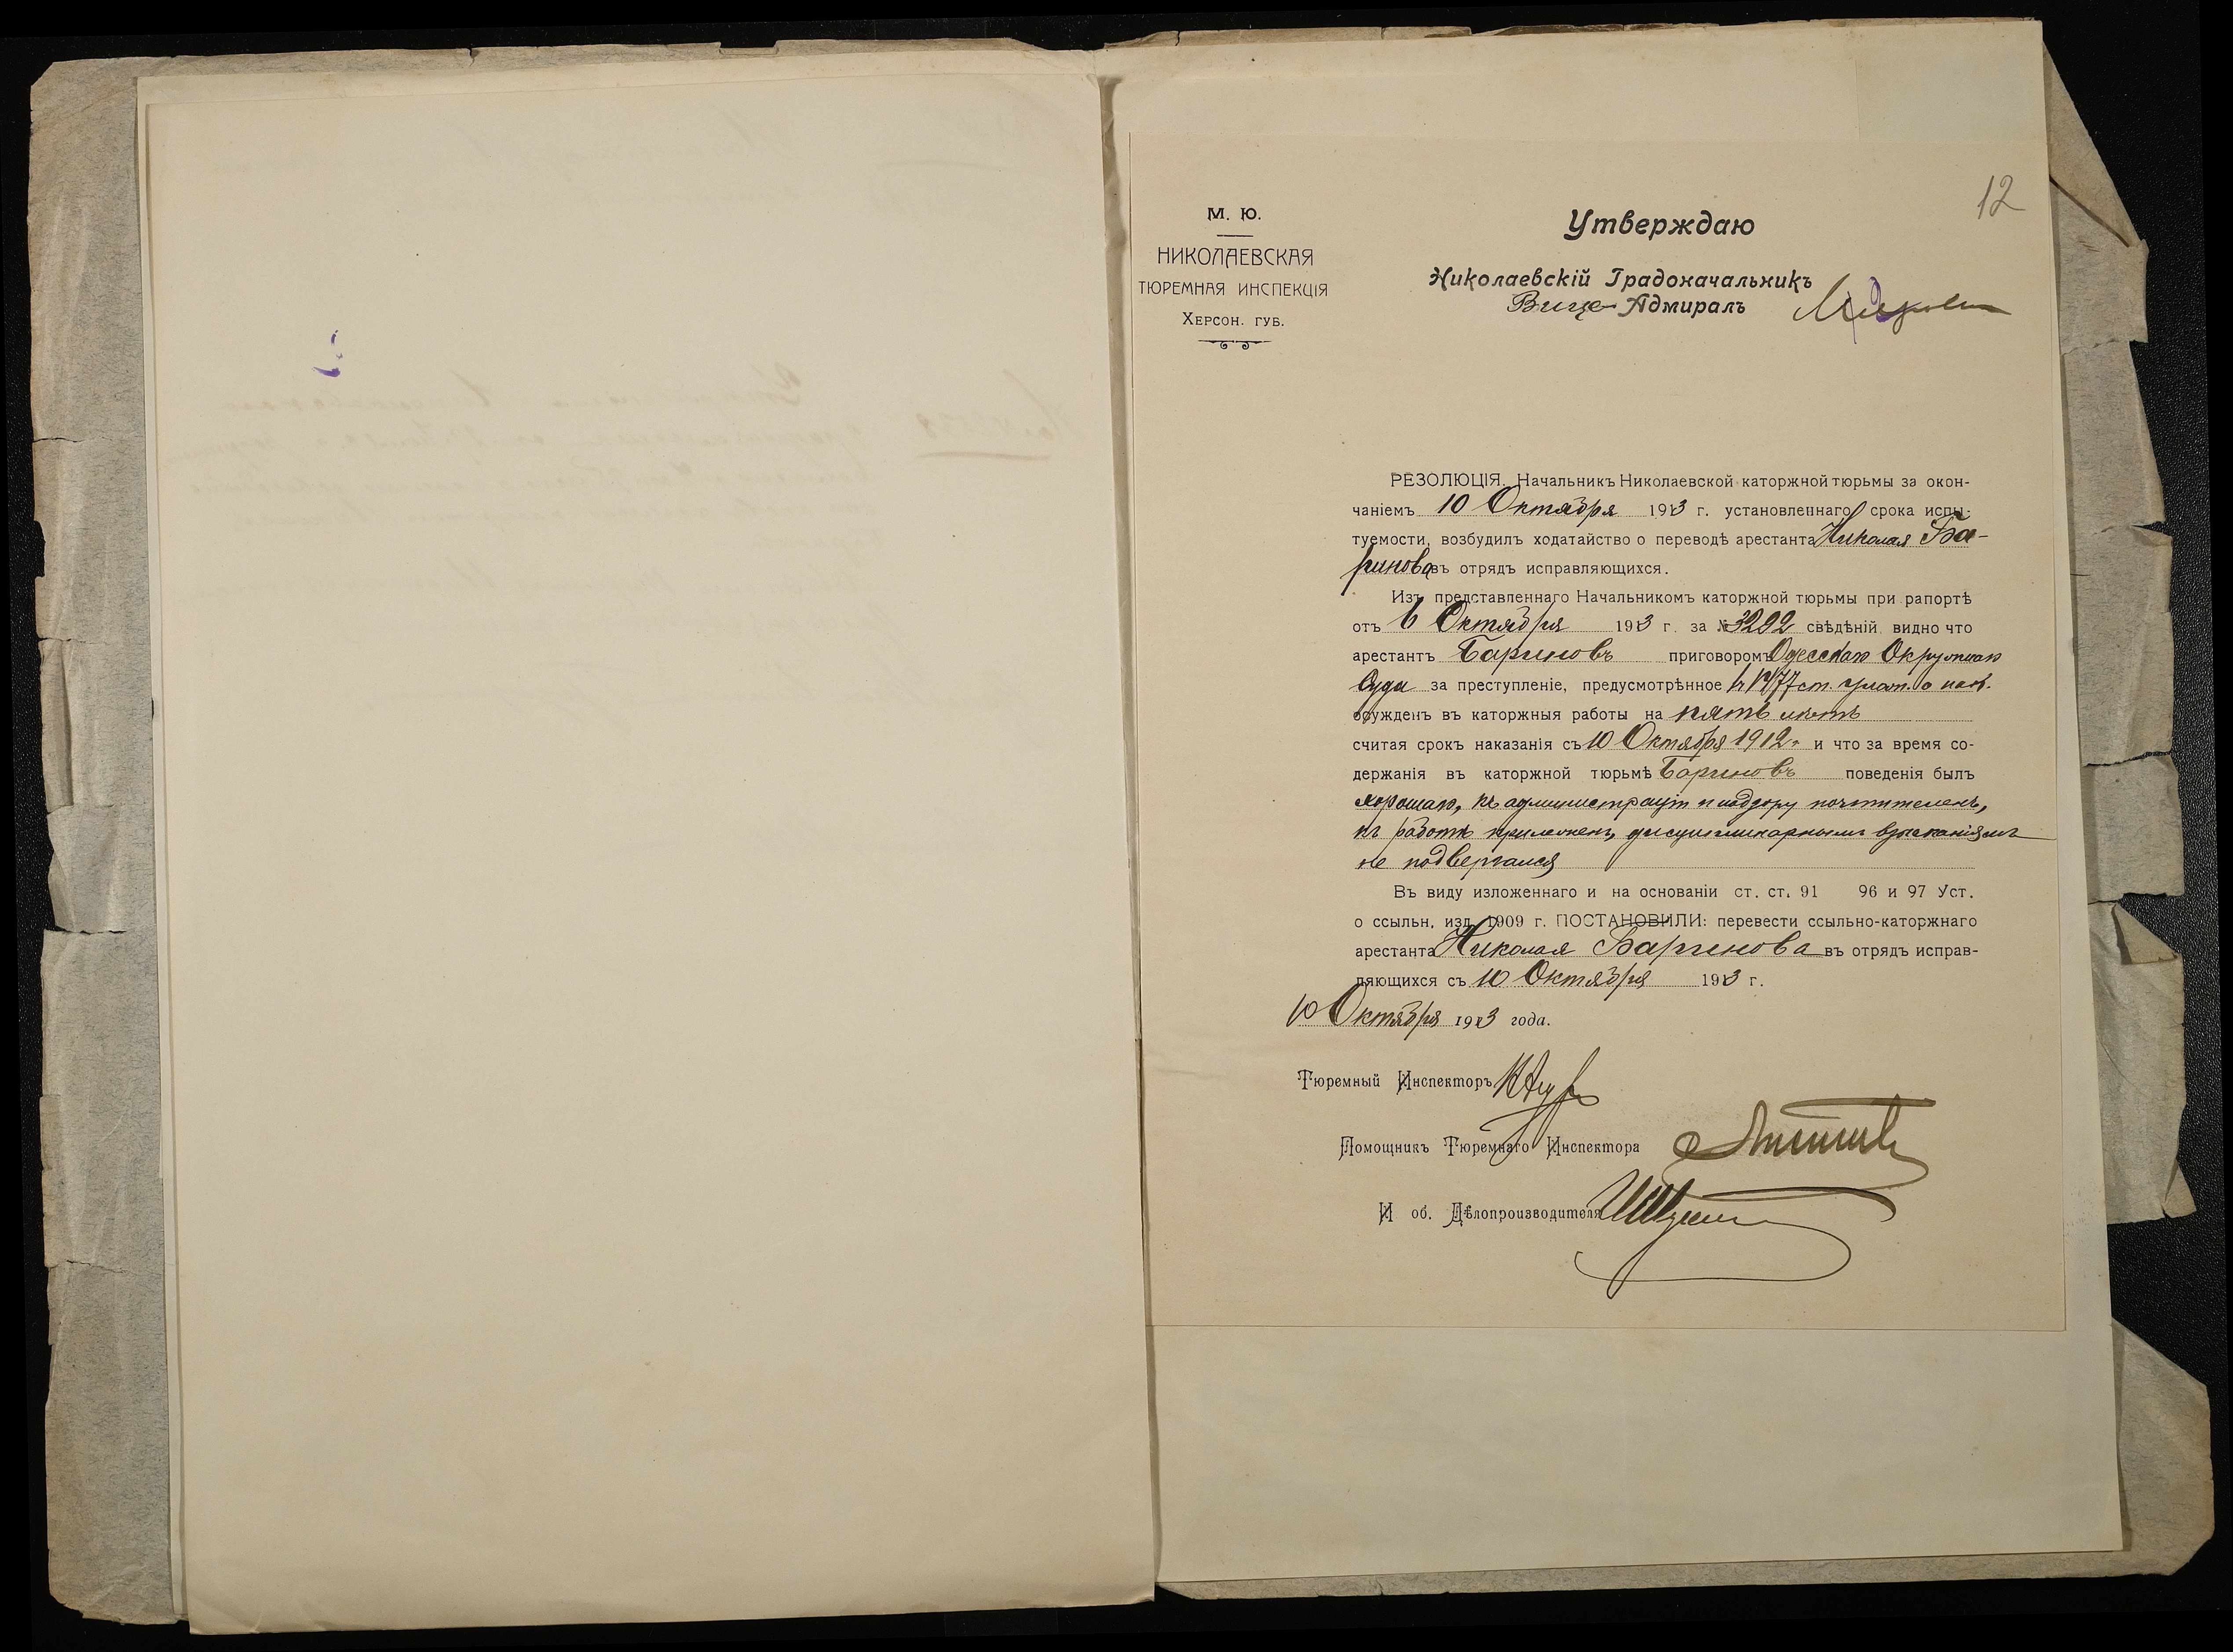 12
М. Ю.
НИКОЛАЕВСКАЯ
ТЮРЕМНАЯ ИНСПЕКЦІЯ
Херсон. губ.
Утверждаю
Николаевскій Градоначальникъ
Вице-Адмиралъ
РЕЗОЛЮЦІЯ. Начальникъ Николаевской каторжной тюрьмы за окон-
чаніемъ 10 Октября 1913 г. установленнаго срока испы-
туемости, возбудилъ ходатайство о переводѣ арестанта Николая Ба-
ринова въ отрядъ исправляющихся.
Изъ представленнаго Начальникомъ каторжной тюрьмы при рапортѣ
отъ 6 Октября 1913 г. за № 3292 свѣдѣній видно что
арестантъ Бариновъ приговоромъ Одесскаго Окружнаго
Суда за преступленіе, предусмотрѣнное ст. улож. о нак.
осужденъ въ каторжныя работы на пять лѣтъ
считая срокъ наказанія съ 10 Октября 1912 г. и что за время со-
держанія въ каторжной тюрьмѣ Бариновъ поведенія былъ
хорошаго, къ администраціи и надзору почтителенъ,
къ работѣ прилеженъ, дисциплинарнымъ взысканіямъ
не подвергался
Въ виду изложеннаго и на основаніи ст. ст. 91 96 и 97 Уст.
о ссыльн. изд. 1909 г. ПОСТАНОВИЛИ: перевести ссыльно-каторжнаго
арестанта Николая Баринова въ отрядъ исправ-
ляющихся съ 10 Октября 1913 г.
10 Октября 1913 года.
Тюремный Инспекторъ
Помощникъ Тюремнаго Инспектора
И об. Дѣлопроизводителя